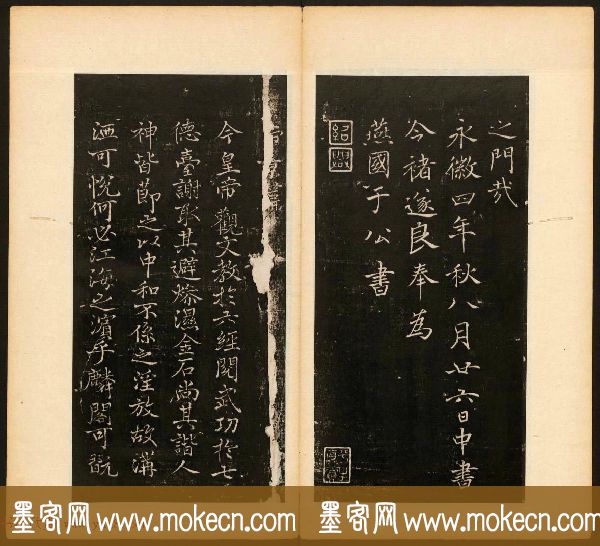 之門哉
永徽四年秋八月廿六日中書
令褚遂良奉為
燕國于公書
紹興
今皇帝觀文教於六經閱武功於七
德臺謝取其避燥濕金石尚其諧人
神皆節之以中和不係之淫放故溝
洒可悅何必江海之濱乎麟閣可翫
墨客网www.mokecn.com 墨客网www.mokecn.com